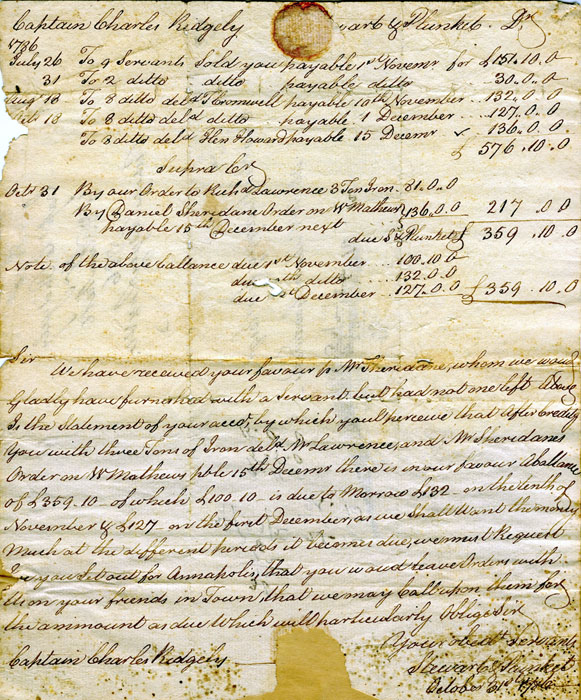 Captain Charles Ridgely wart & Plunket. Dr
1786
July 26 To 9 Servants Sold you payable 1st Novemr for £151.10.0
31 To 2 ditto ditto payable ditto 30.0.0
Aug 18 To 8 ditto deld T Cromwell payable 10th November 132.0.0
18 To 8 ditto deld ditto payable 1 December 127.0.0
To 8 ditto deld Hen Howard payable 15 Decemr 136.0.0
£ 576.10.0
Supra Cr
Octr 31 By our Order to Richd Lawrence 3 Ton Iron 81.0.0
By Daniel Sheridane Order on W Mathews 136.0.0 217.0.0
payable 15th December next
due St & Plunket £ 359.10.0
Note of the above ballance due 1st November 100.10.0
due th ditto 132.0.0
due December 127.0.0 £359.10.0
Sir
We have received your favour p Mr Sheridane, whom we woud
Gladly have furnished with a Servant but had not one left
Is the Statement of your accot, by which you'l perceive that After Credit
You with three Tons of Iron deld Mr Lawrence, and Mr Sheridans
Order on W Mathews pble 15th Decemr there is in our favour A ballance
of £359.10 of which £100.10 is due to Morrow £132 on the tenth of
November & £127 on the first December, as we Shall Want the money
Much at the different periods it becomes due, we must Request
you Set out for Annapolis, that you woud leave Orders with
Us on your friends in Town, that we may Call upon them for
the ammount as due Which will particularly Oblige Sir
Your obedt Servants
Captain Charles Ridgely Stewart & Plunket
October 31st 1786